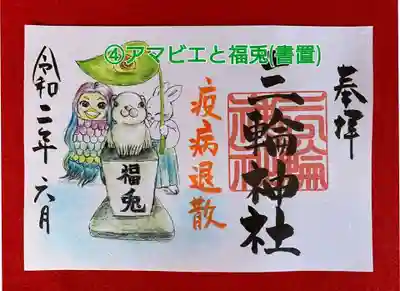 ④アマビエと福兎(書置)
奉拝
三輪神社
疫病退散
福兎
令和二年六月